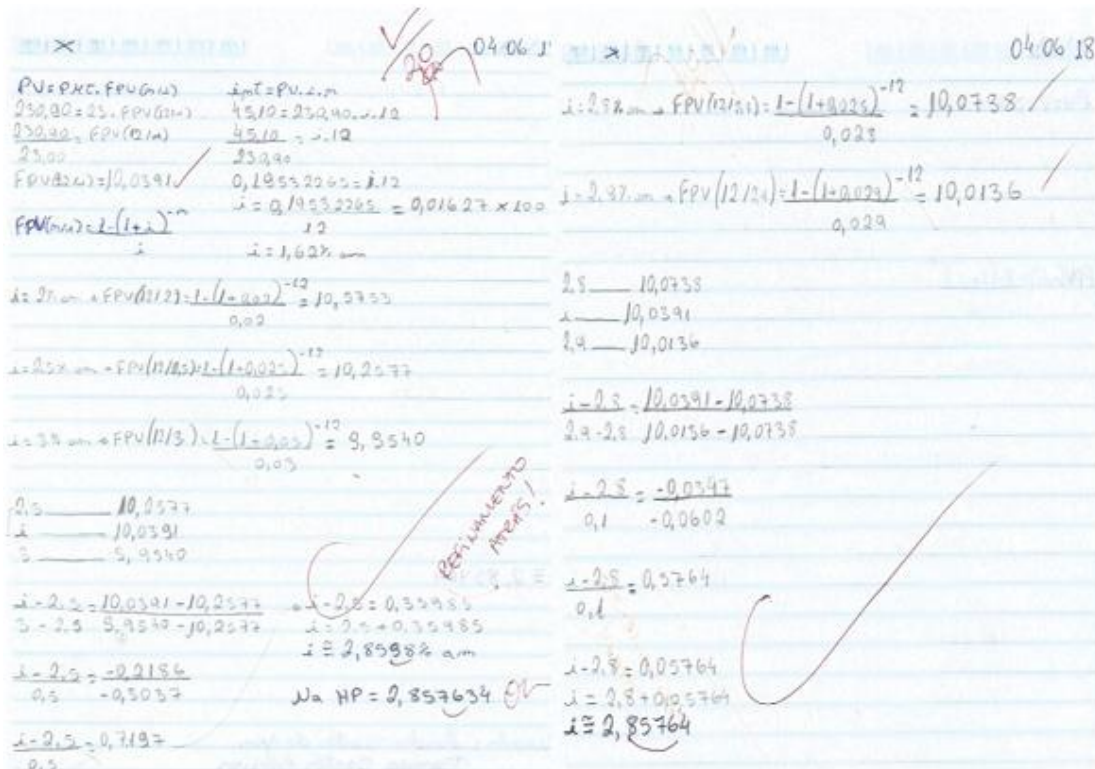 20
04.06.1
PV = PMT. FPV(n/i)
230,90 = 23. FPV(12/i)
230,90 = FPV(12/i)
23,00
FPV(12/i) = 10,0391
FPV(n/i) = 1-(1+i)^-n
i
int = PV.i.n
45,10 = 230,90.i.12
45,10 = i.12
230,90
0,19532265 = i.12
i = 0,19532265 = 0,01627 x 100
12
i = 1,62% am
i = 2% am → FPV(12/2) = 1-(1+0,02)^-12 = 10,5753
0,02
i = 2,5% am → FPV(12/2,5) = 1-(1+0,025)^-12 = 10,2577
0,025
i = 3% am → FPV(12/3) = 1-(1+0,03)^-12 = 9,9540
0,03
2,5 ___ 10,2577
i ___ 10,0391
3 ___ 9,9540
i-2,5 = 10,0391-10,2577
3-2,5 9,9540-10,2577
i-2,5 = -0,2186
0,5 -0,3037
i-2,5 = 0,7197
0,5
i-2,5 = 0,35985
i = 2,5+0,35985
i ≅ 2,8598% am
Na HP = 2,857634
REFINAMENTO
ATRÁS!
04.06.18
i = 2,8% am → FPV(12/2,8) = 1-(1+0,028)^-12 = 10,0738
0,028
i = 2,9% am → FPV(12/2,9) = 1-(1+0,029)^-12 = 10,0136
0,029
2,8 ___ 10,0738
i ___ 10,0391
2,9 ___ 10,0136
i-2,8 = 10,0391-10,0738
2,9-2,8 10,0136-10,0738
i-2,8 = -0,0347
0,1 -0,0602
i-2,8 = 0,5764
0,1
i-2,8 = 0,05764
i = 2,8+0,05764
i ≅ 2,85764